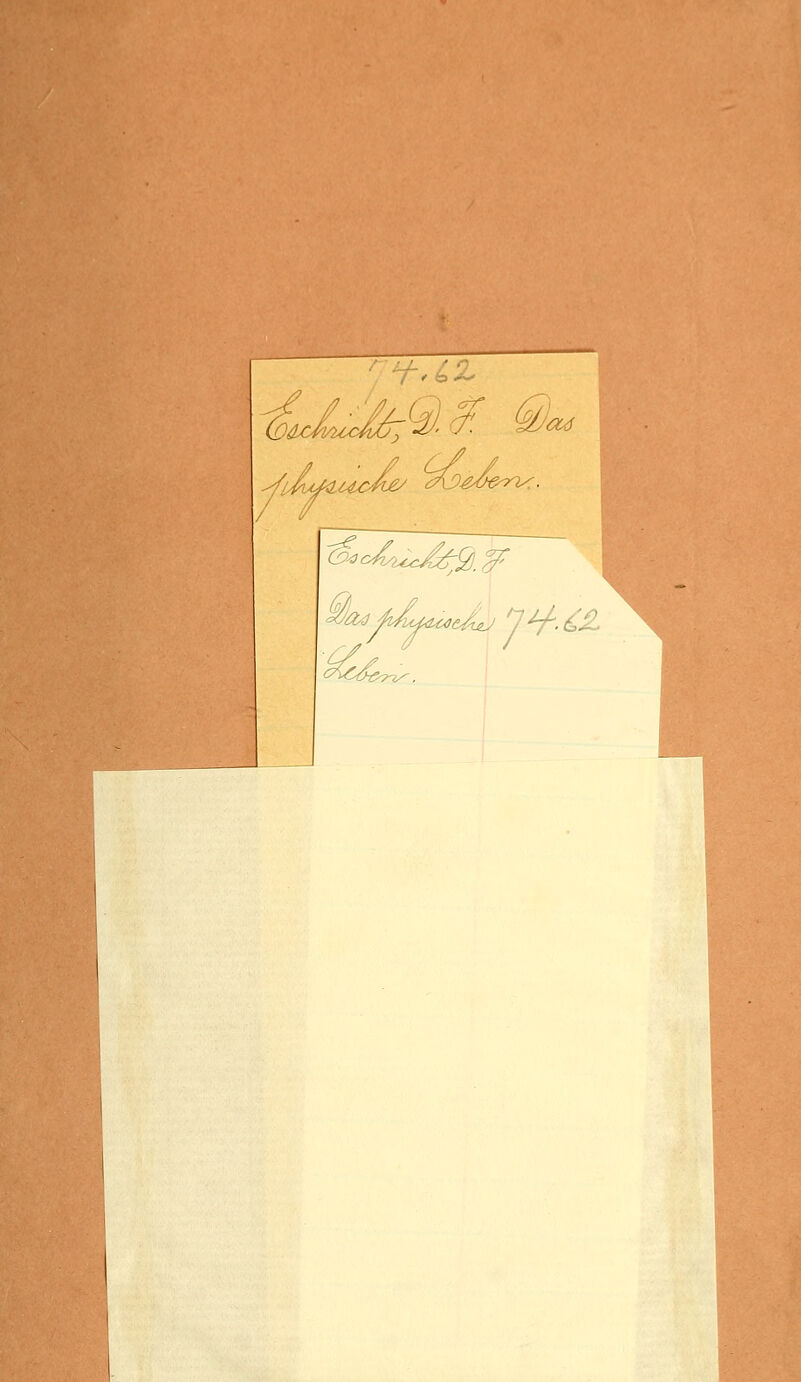 74.62
Eschricht, D. F. Das
physische Leben.
Eschricht, D. F
Das physische 74.62
Leben.